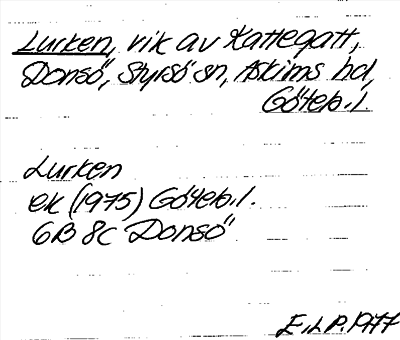 Lurken, vik av Kattegatt,
Donsö, Styrsö sn, Askims hd,
Göteb.l.
Lurken
ek (1975) Göteb.l.
6B 8c Donsö
E.L.P. 1977